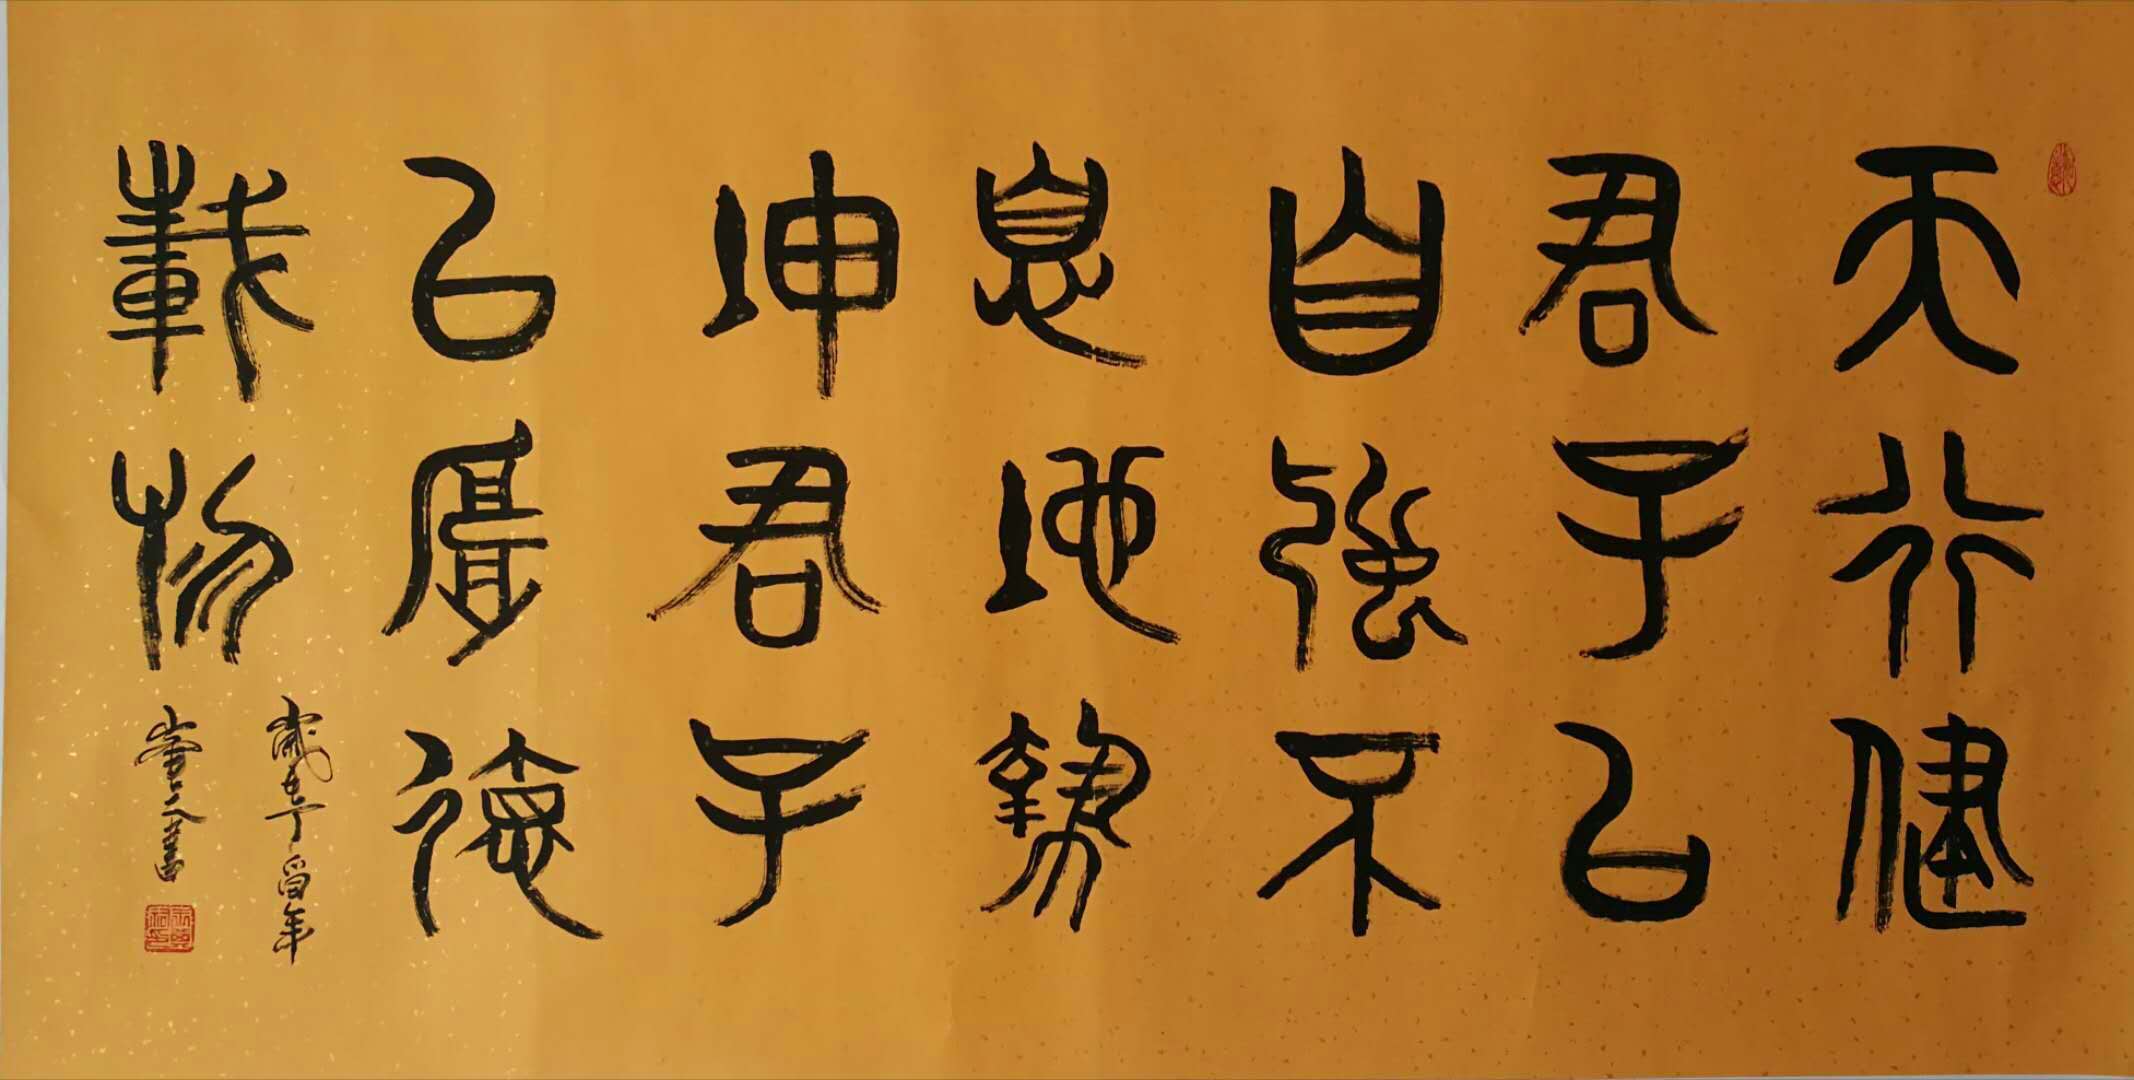 天行健
君子以
自強不
息地勢
坤君子
以厚德
載物
歲在丁酉年